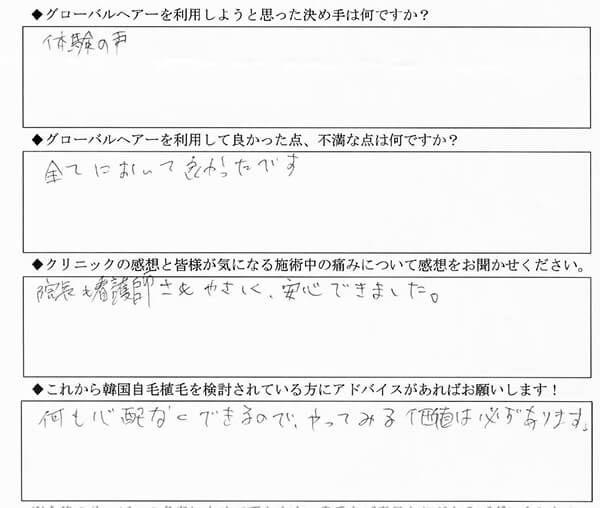 ◆グローバルヘアーを利用しようと思った決め手は何ですか？
体験の声
◆グローバルヘアーを利用して良かった点、不満な点は何ですか？
全てにおいて良かったです
◆クリニックの感想と皆様が気になる施術中の痛みについて感想をお聞かせください。
院長も看護師さんもやさしく、安心できました。
◆これから韓国自毛植毛を検討されている方にアドバイスがあればお願いします！
何も心配なくできるので、やってみる価値は必ずあります。